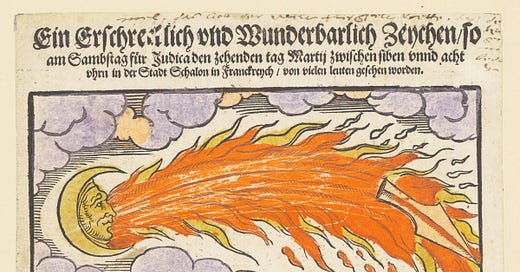 Ein Erschrecklich vnd Wunderbarlich Zeychen/so
am Sambstag für Judica den zehenden tag Martij zwischen siben vnnd acht
vhrn in der Stadt Schalon in Franckreych / von vielen leuten gesehen worden.